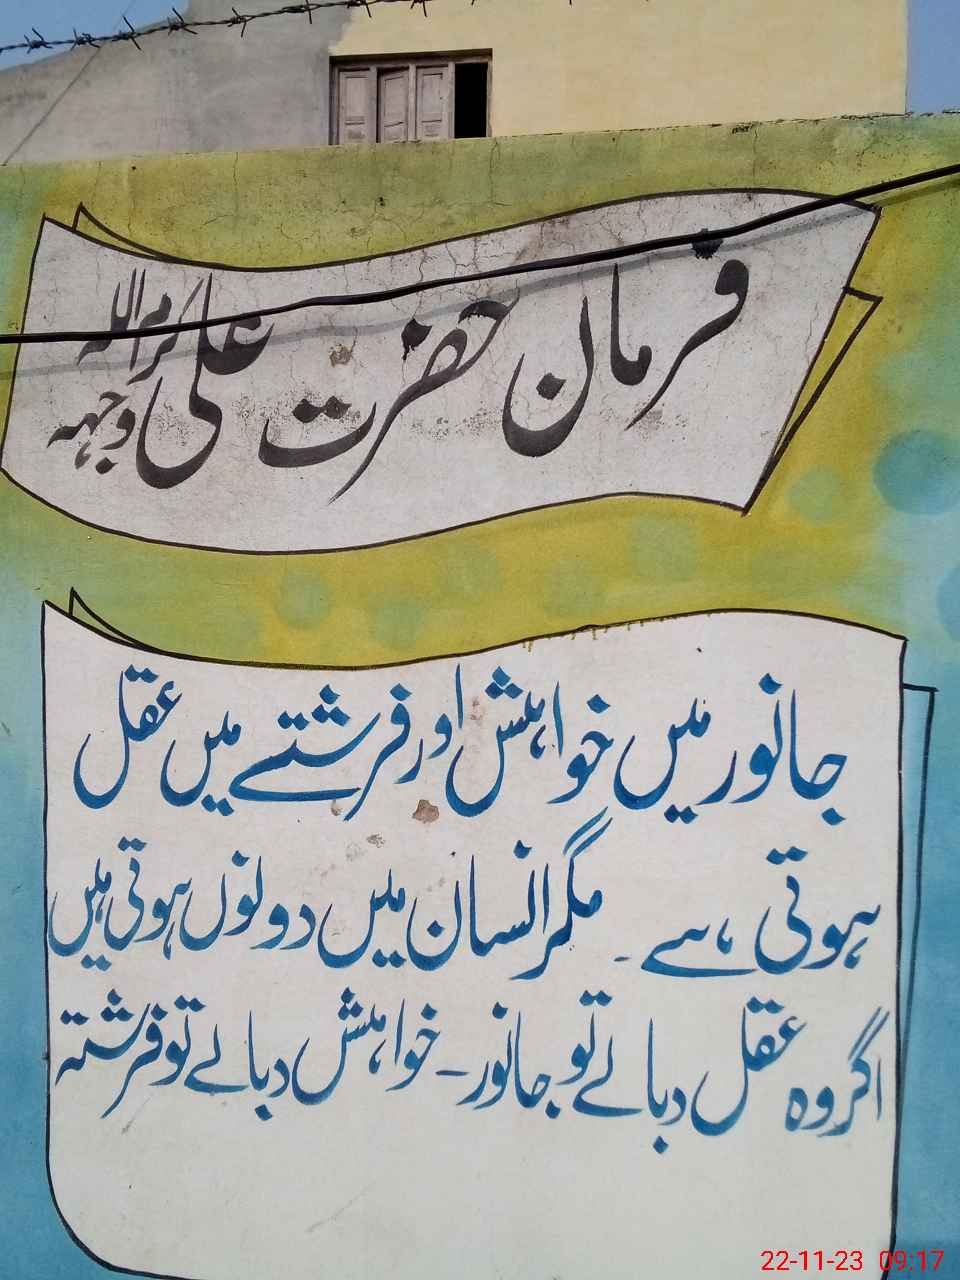 فرمان حضرت علی کرم اللہ وجہہ
جانور میں خواہش اور فرشتے میں عقل
ہوتی ہے ۔ مگر انسان میں دونوں ہوتی ہیں
اگر وہ عقل دبالے تو جانور ۔ خواہش دبالے تو فرشتہ
22-11-23 09:17